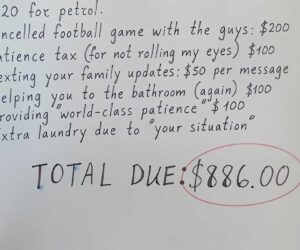 20 for petrol.
ncelled football game with the guys: $200
atience tax (for not rolling my eyes) $100
exting your family updates: $50 per message
elping you to the bathroom (again) $100
roviding "world-class patience" $100
xtra laundry due to "your situation"
TOTAL DUE: $886.00